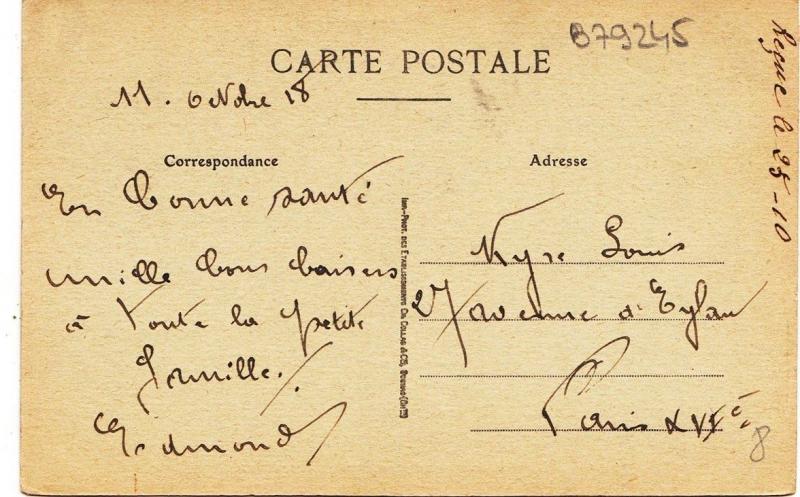 B79245
CARTE POSTALE
11. octobre 18
Reçue le 25-10
Correspondance
En bonne santé
mille bons baisers
à toute la petite
famille.
Edmond
IMP.-PHOT. DES ETABLISSEMENTS CH. COLLAS & CIE, COGNAC (CHTE)
Adresse
Louis
27 avenue d'Eylau
Paris XVIe
8